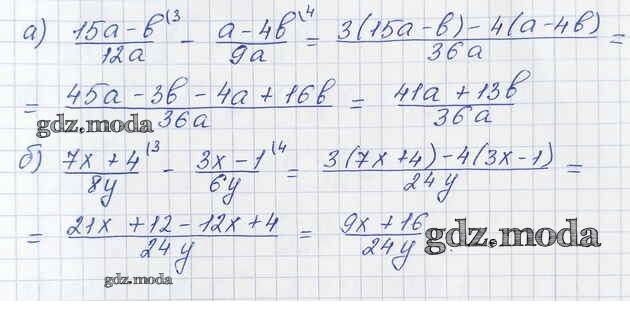 а) (15a - b)/(12a) \3 - (a - 4b)/(9a) \4 = (3(15a - b) - 4(a - 4b))/(36a) =
= (45a - 3b - 4a + 16b)/(36a) = (41a + 13b)/(36a)
gdz.moda
б) (7x + 4)/(8y) \3 - (3x - 1)/(6y) \4 = (3(7x + 4) - 4(3x - 1))/(24y) =
= (21x + 12 - 12x + 4)/(24y) = (9x + 16)/(24y)
gdz.moda
gdz.moda